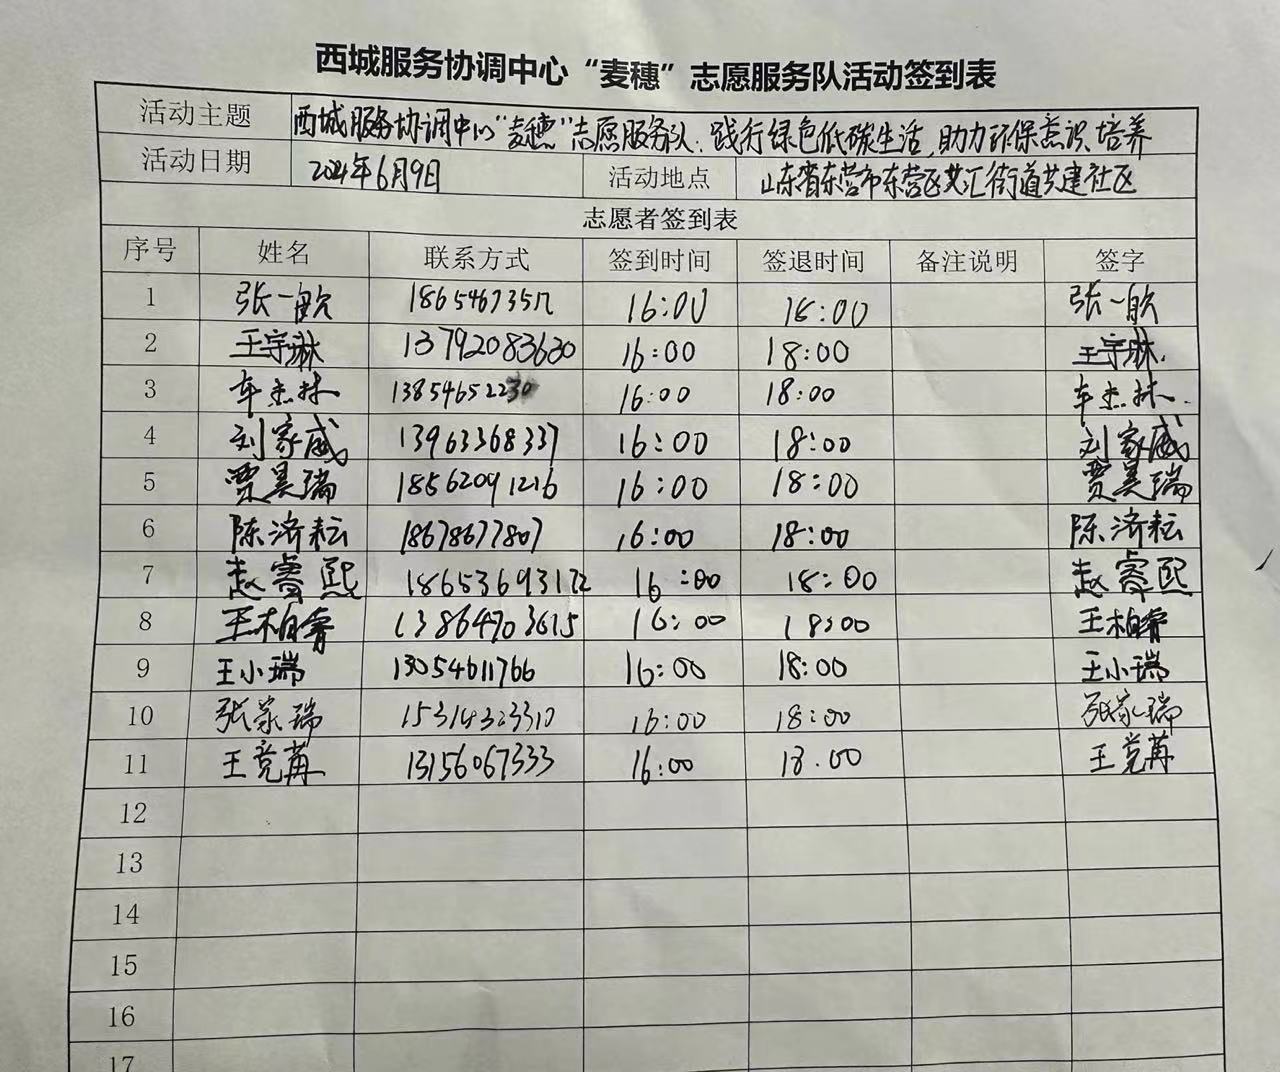 西城服务协调中心“麦穗”志愿服务队活动签到表
活动主题 西城服务协调中心“麦穗”志愿服务队.践行绿色低碳生活,助力环保意识培养
活动日期 2024年6月9日 活动地点 山东省东营市东营区文汇街道共建社区
志愿者签到表
序号 姓名 联系方式 签到时间 签退时间 备注说明 签字
1 张一 16:00 18:00 张一
2 王宇琳 13792083630 16:00 18:00 王宇琳.
3 车杰林 13854652230 16:00 18:00 车杰林.
4 刘家威 13963368337 16:00 18:00 刘家威
5 贾昊瑞 18562091216 16:00 18:00 贾昊瑞
6 陈济耘 18678677807 16:00 18:00 陈济耘
7 赵睿熙 18653693172 16:00 18:00 赵睿熙
8 王柏睿 13864703615 16:00 18:00 王柏睿
9 王小瑞 13054611766 16:00 18:00 王小瑞
10 张家瑞 15314323310 16:00 18:00 张家瑞
11 王竞苒 13156067333 16:00 18.00 王竞苒
12
13
14
15
16
17